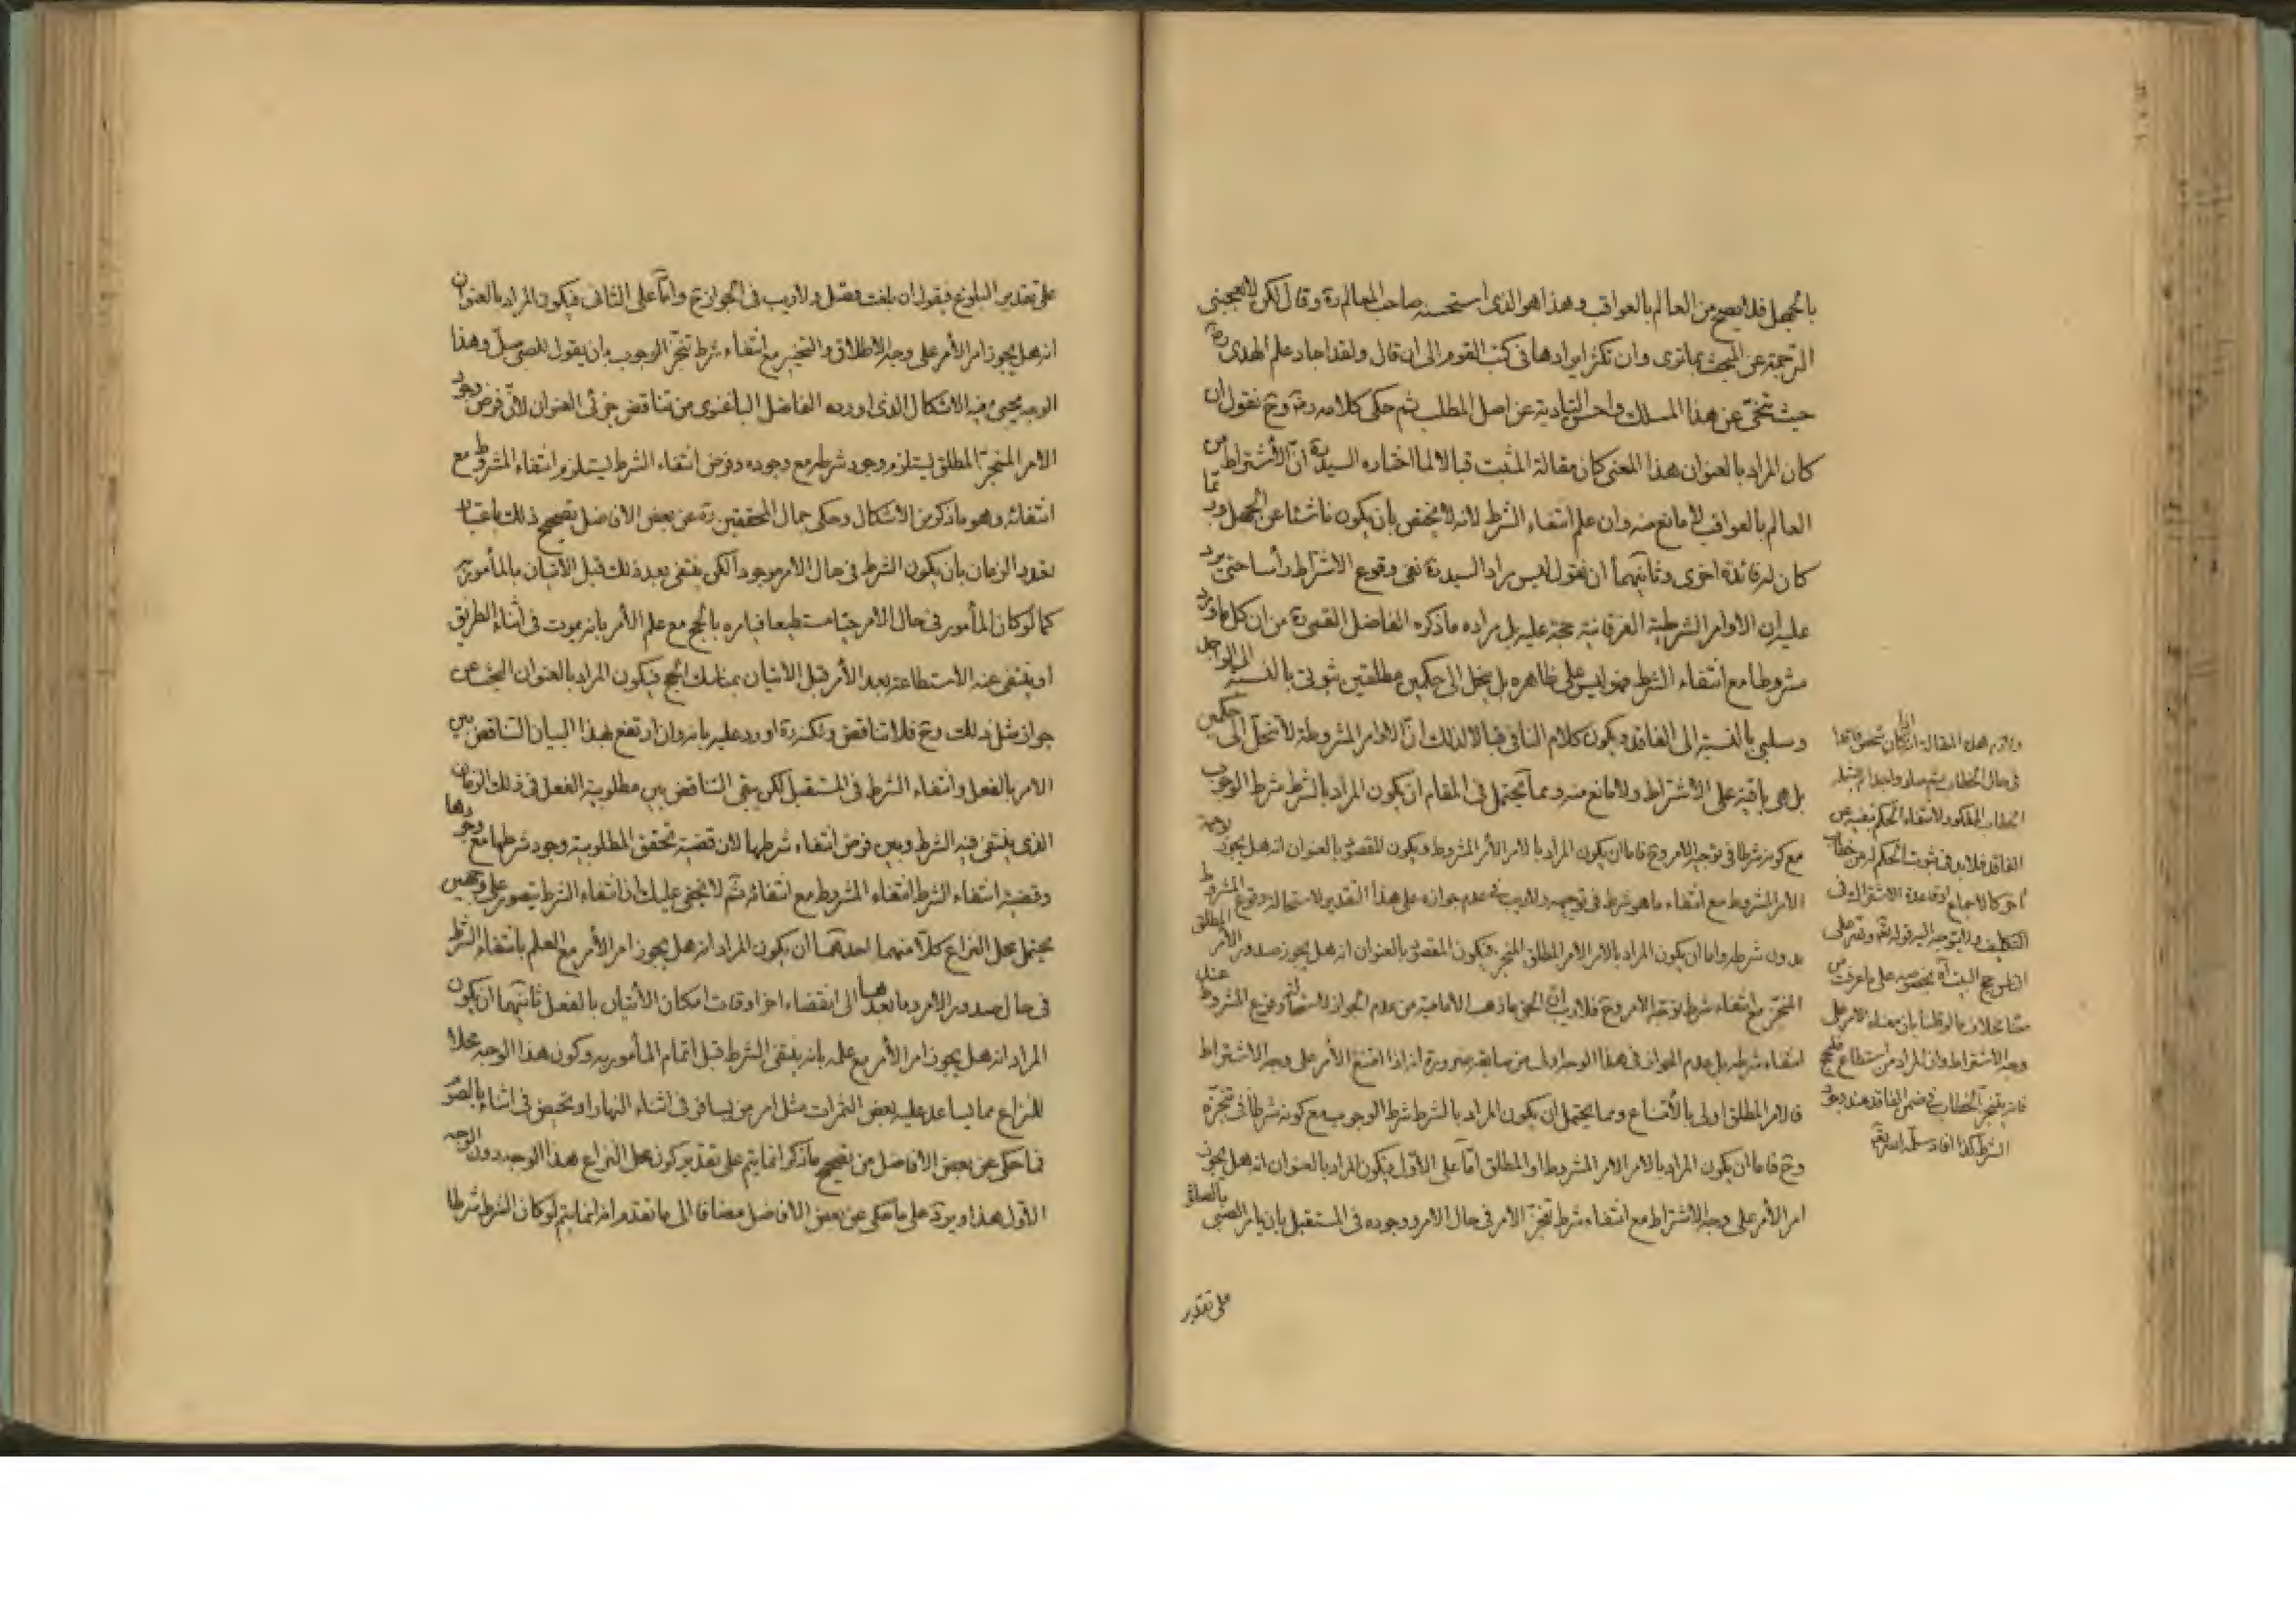 بالجهل فلا يصح من العالم بالعواقب وهذا هو الذى استحسنه صاحب المعالم ره وقال لكن لا يعجبنى
الترجمة عن المبحث بما ترى وان تكثر ايرادها فى كتب القوم الى ان قال ولقد اجاد علم الهدى ره
حيث تنحّى عن هذا المسلك واحسن التأدية عن اصل المطلب ثم حكى كلامه ره وح نقول ان
كان المراد بالعنوان هذا المعنى كان مقالة المثبت قبالا لما اختاره السيد ره انّ الأشتراط من
العالم بالعواقب لا مانع منه وان علم انتفاء الشرط لانه لا يختص بان يكون ناشئا عن الجهل وربما
كان له فائدة اخرى وثانيهما ان نقول ليس مراد السيد ره نفى وقوع الاشتراط رأسا حتى يرد
عليه ان الاوامر الشرطية الفرقانية حجة عليه بل مراده ما ذكره الفاضل القمى ره من ان كل ما ورد
مشروطا مع انتفاء الشرط فهو ليس على ظاهره بل ينحل الى حكمين مطلقين ثبوتى بالنسبة الى الواجد
وسلبى بالنسبة الى الفاقد ويكون كلام النافى قبالا لذلك انّ الاوامر المشروطة لا تنحلّ الى حكمين
بل هى باقية على الاشتراط ولا مانع منه ومما يحتمل فى المقام ان يكون المراد بالشرط شرط الوجوب
مع كونه شرطا فى توجيه الامر وح فاما ان يكون المراد بالامر الأمر المشروط ويكون المقصود بالعنوان انه هل يجوز
الامر المشروط مع انتفاء ما هو شرط فى توجيهه ولا ريب فى عدم جوازه على هذا التقدير لاستحالة وقوع المشروط
بدون شرطه واما ان يكون المراد بالامر الامر المطلق المنجز فيكون المقصود بالعنوان انه هل يجوز صدور الأمر المطلق
المنجّز مع انتفاء شرط توجه الامر وح فلا ريب انّ الحق ما ذهب الامامية من عدم الجواز لاستحالة وقوع المشروط عند
انتفاء شرطه بل عدم الجواز فى هذا الوجه اولى من سابقه ضرورة انه اذا امتنع الأمر على وجه الاشتراط
فالامر المطلق اولى بالأمتناع ومما يحتمل ان يكون المراد بالشرط شرط الوجوب مع كونه شرطا فى تنجزه
وح فاما ان يكون المراد بالامر الامر المشروط او المطلق امّا على الأوّل فيكون المراد بالعنوان انه هل يجوز
امر الأمر على وجه الاشتراط مع انتفاء شرط تنجّز الامر فى حال الامر ووجوده فى المستقبل بان يامر الصبى بالصلوة
على تقدير
فى حال الخطاب
الفاقد فلا ريب فى ثبوت الحكم
وجه الاشتراط وان المراد من استطاع فليحج
على تقدير البلوغ فيقول ان بلغت فصل ولا ريب فى الجواز ح وامّا على الثانى فيكون المراد بالعنوان
انه هل يجوز امر الأمر على وجه الاطلاق والتنجيز مع انتفاء شرط تنجّز الوجوب بان يقول للصبى صلّ وهذا
الوجه يجىء فيه الاشكال الذى اورده الفاضل الباغنوى من تناقض جزئى العنوان لانّ فرض وجود
الامر المنجزّ المطلق يستلزم وجود شرطه مع وجوده وفرض انتفاء الشرط يستلزم انتفاء المشروط مع
انتفائه وهو ما ذكر من الاشكال وحكى جمال المحققين ره عن بعض الافاضل تصحيح ذلك باعتبار
تعدد الزمان بان يكون الشرط فى حال الامر موجودا لكن ينتفى بعد ذلك قبل الأتيان بالمأمور به
كما لو كان المأمور فى حال الامر حيّا مستطيعا فيامره بالحج مع علم الأمر بانه يموت فى اثناء الطريق
او ينتفى عنه الاستطاعة بعد الأمر قبل الاتيان بمناسك الحج فيكون المراد بالعنوان البحث عن
جواز مثل ذلك وح فلا تناقض ولكنه ره اورد عليه بانه وان ارتفع بهذا البيان التناقض بين
الامر بالفعل وانتفاء الشرط فى المستقبل لكن بقى التناقض بين مطلوبية الفعل فى ذلك الزمان
الذى ينتفى فيه الشرط وبين فرض انتفاء شرطها لان قضية تحقق المطلوبية وجود شرطها مع وجودها
وقضية انتفاء الشرط انتفاء المشروط مع انتفائه ثم لا يخفى عليك ان انتفاء الشرط يتصور على وجهين
يحتمل محل النزاع كلّا منهما احدهما ان يكون المراد انه هل يجوز امر الأمر مع العلم بانتفاء الشرط
فى حال صدور الامر وما بعدها الى انقضاء اخر اوقات امكان الأتيان بالفعل ثانيهما ان يكون
المراد انه هل يجوز امر الأمر مع علمه بانه ينتفى الشرط قبل اتمام المأمور به وكون هذا الوجه محلا
للنزاع مما يساعد عليه بعض الثمرات مثل امر من يسافر فى اثناء النهار او تحيض فى اثنائه بالصوم
فما حكى عن بعض الافاضل من تصحيح ما ذكر انما يتم على تقدير كون محل النزاع هذا الوجه دون الوجه
الأول هذا ويرد على ما حكى عن بعض الافاضل مضافا الى ما تقدم انه انما يتم لو كان الشرط شرطا